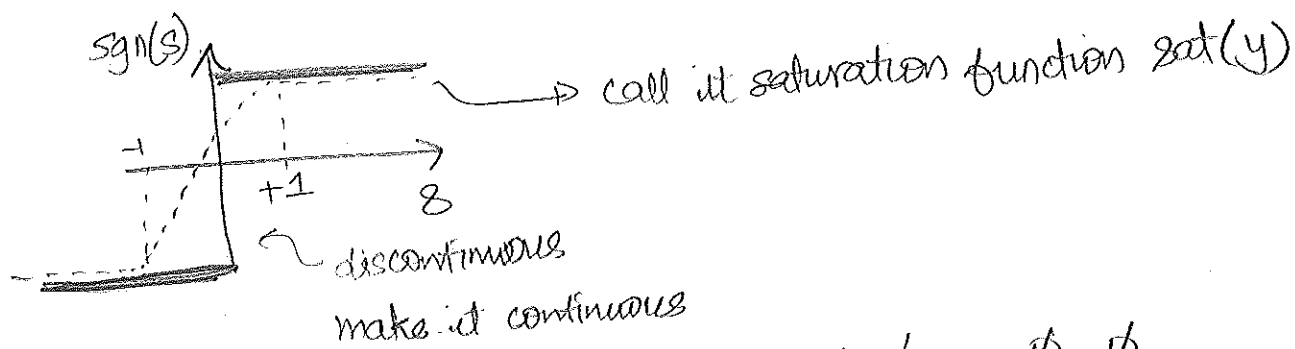 sgn(s)
call it saturation function sat(y)
-1
+1
s
discontinuous
make it continuous